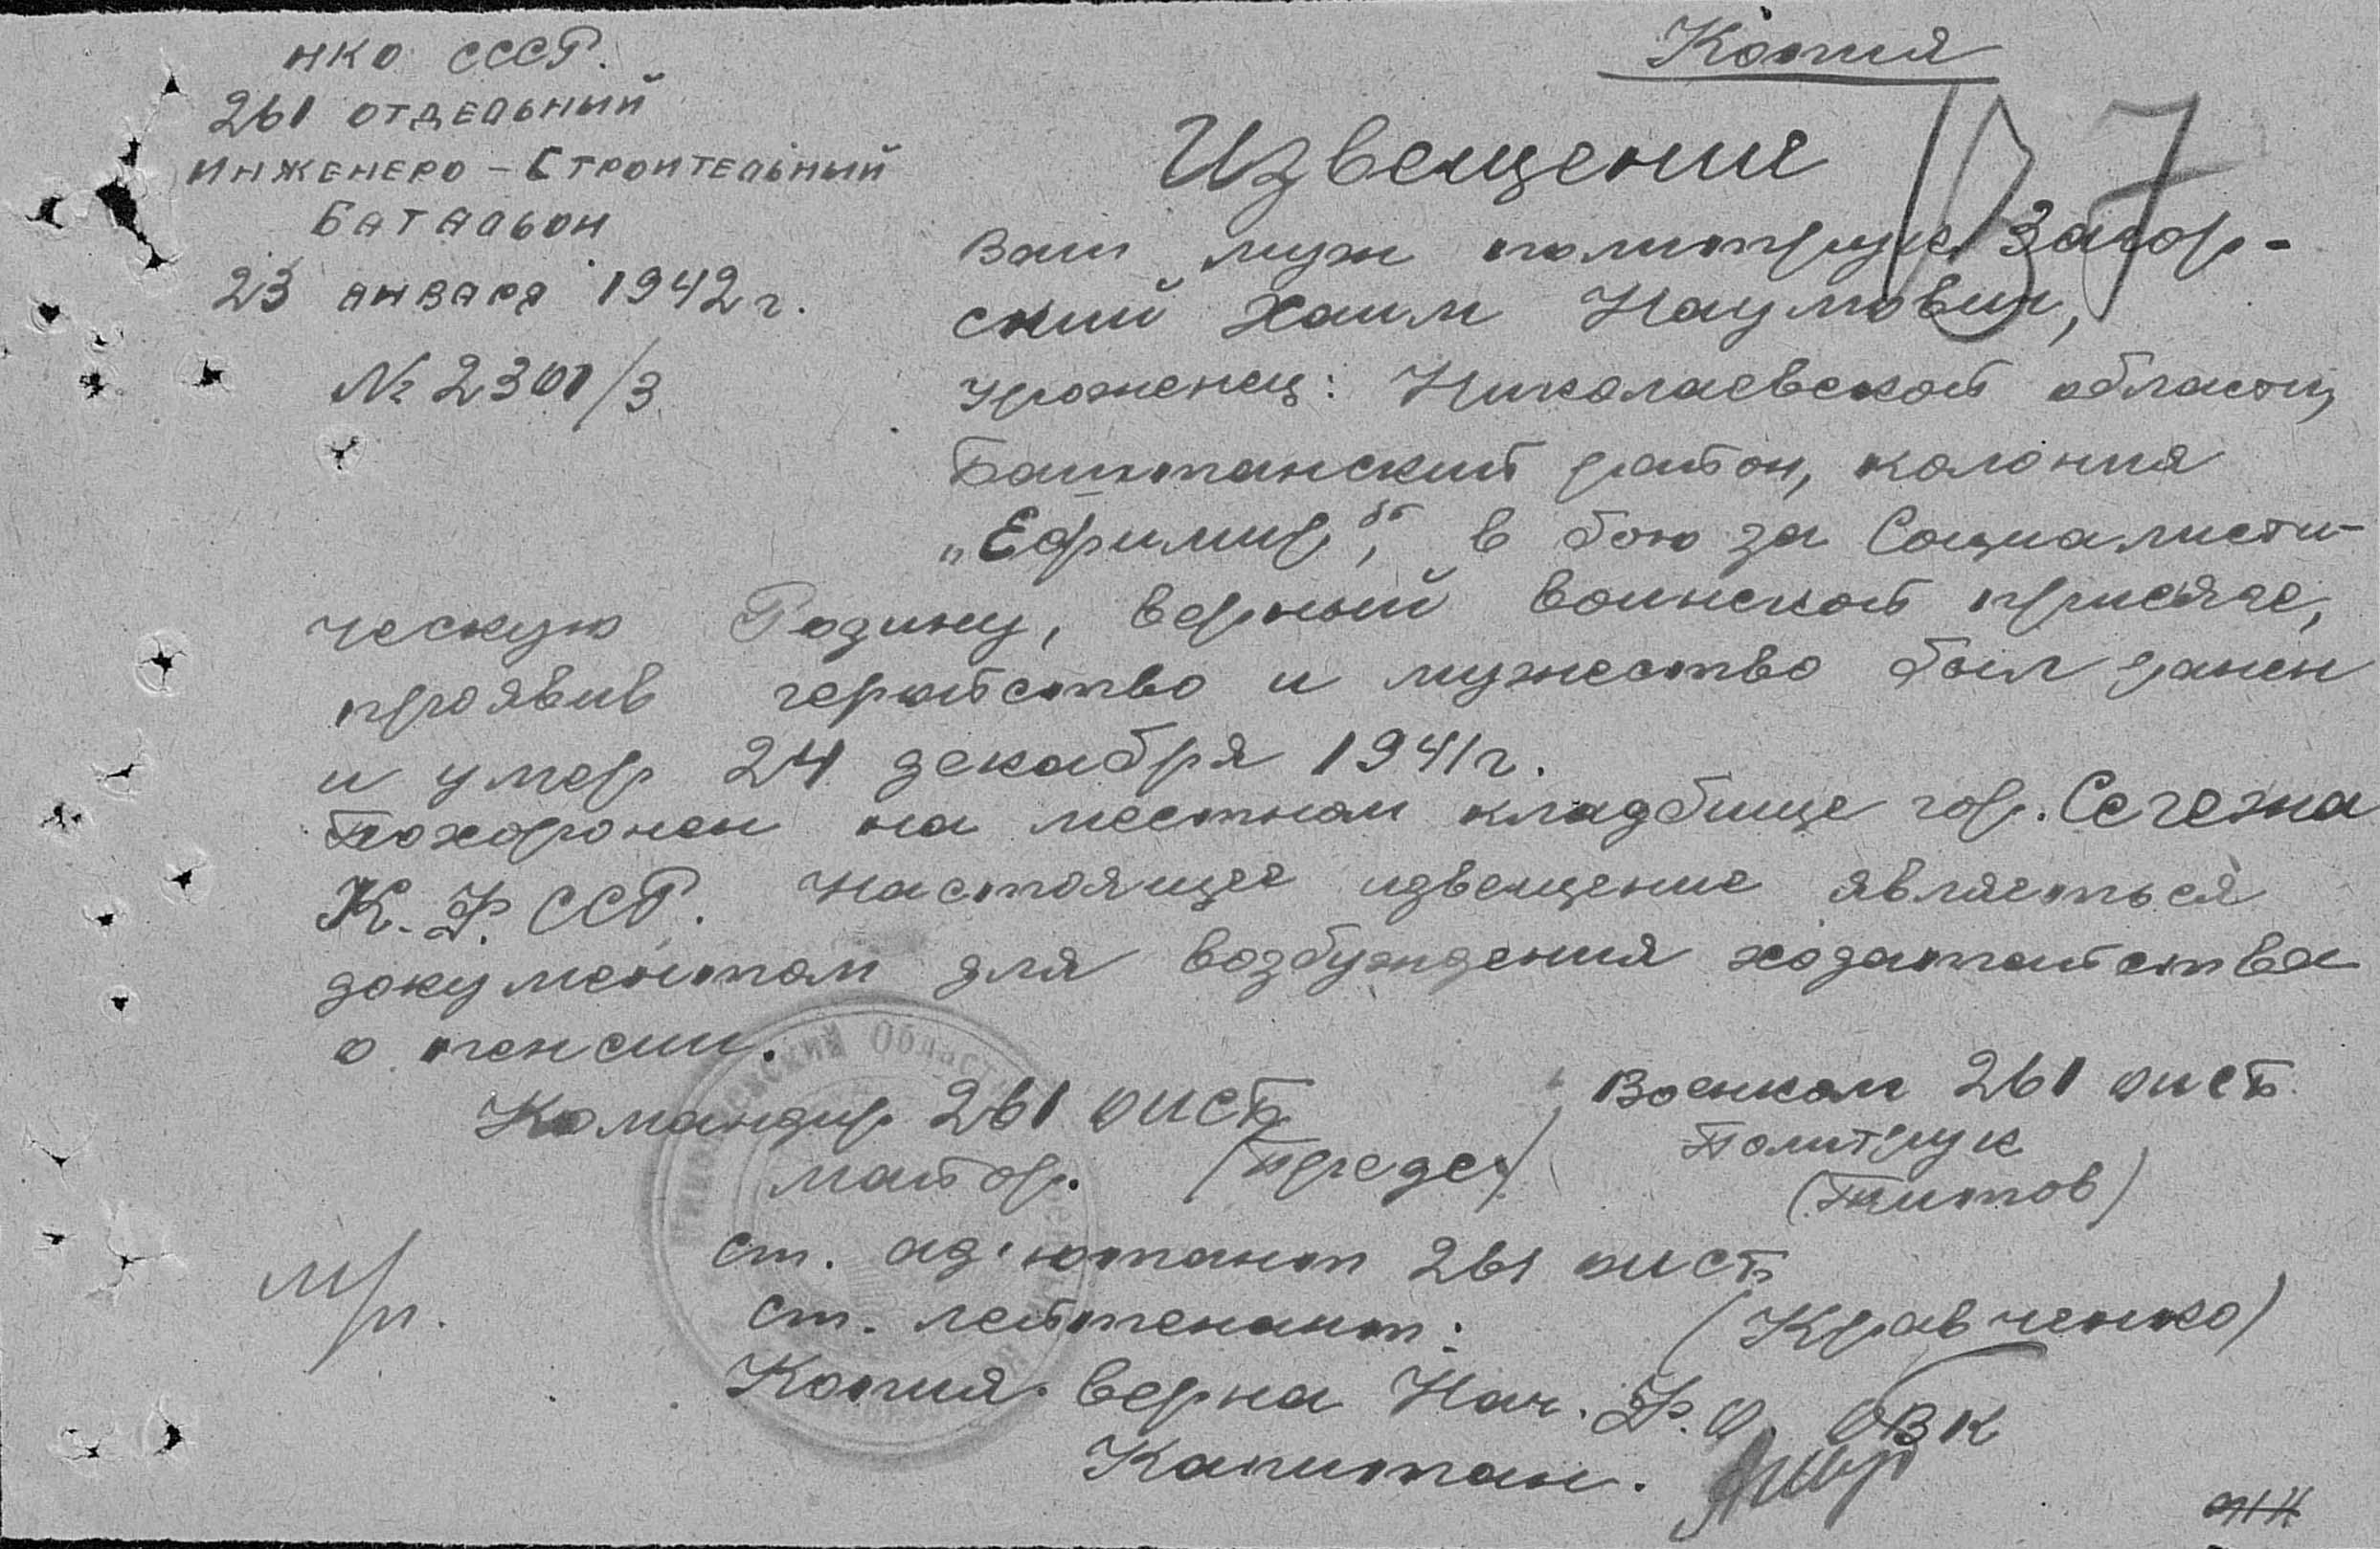 НКО СССР.
261 отдельный
инженеро-строительный
батальон
23 января 1942г.
№ 2301/3
Копия
137
Извещение
Ваш муж политрук Загор-
ский Хаим Наумович,
уроженец: Николаевской области,
Баштанский район, колония
„Ефимир", в бою за Социалисти-
ческую Родину, верный воинской присяге,
проявив геройство и мужество был ранен
и умер 24 декабря 1941г.
Похоронен на местном кладбище гор. Сегежа
К.Ф.ССР. Настоящее извещение являеться
документом для возбуждения ходатайства
о пенсии.
Командир 261 ОИСБ
майор. (Передел)
Военком 261 ОИСБ
Политрук
(Титов)
ст. ад'ютант 261 ОИСБ
ст. лейтенант: (Кравченко)
м/п.
Копия верна Нач. Ф.О. ОВК
Капитан.